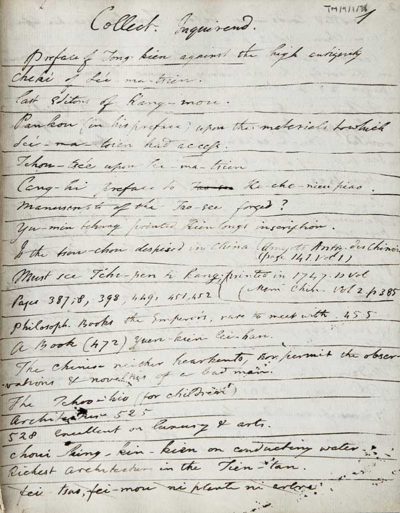 TM/1/1/38
1
Collect. Inquirend.
Preface of Tong-kien against the high antiquity
Cheki of See-ma-tsien.
last Editors of Kang-mou.
Pankou (in his preface) upon the materials to which
See-ma-tsien had access.
Tchou-tsee upon Se-ma-tsien
Cang-hi preface to Ke-che-nien piao.
Manuscripts of the Tao-see forged?
Yu-men tching printed Kien long's inscription.
Is the tsou-chou despised in China (Amyots Antiq. des Chinois
(page 141. Vol 1)
Must see Tcho-pen & Kang, printed in 1747. 12 Vol
Pages 387,8, 398, 449, 451, 452 (Mem. Chin. Vol 2 p 385
Philosoph. Books the Emperor's, rare to meet with. 455
A Book (472) Yuen-kien lei-han.
The Chinese neither hearkents, nor permit the obser-
vations & novelties of a bad man.
The Tchoo-hio (for children)
Architecture 525
528 Excellent on luxury & arts.
Choui-king-kin-kien on conducting water.
Richest Architecture in the Tien-tan.
fei tsao, fei-mou ni plante ni arbre.